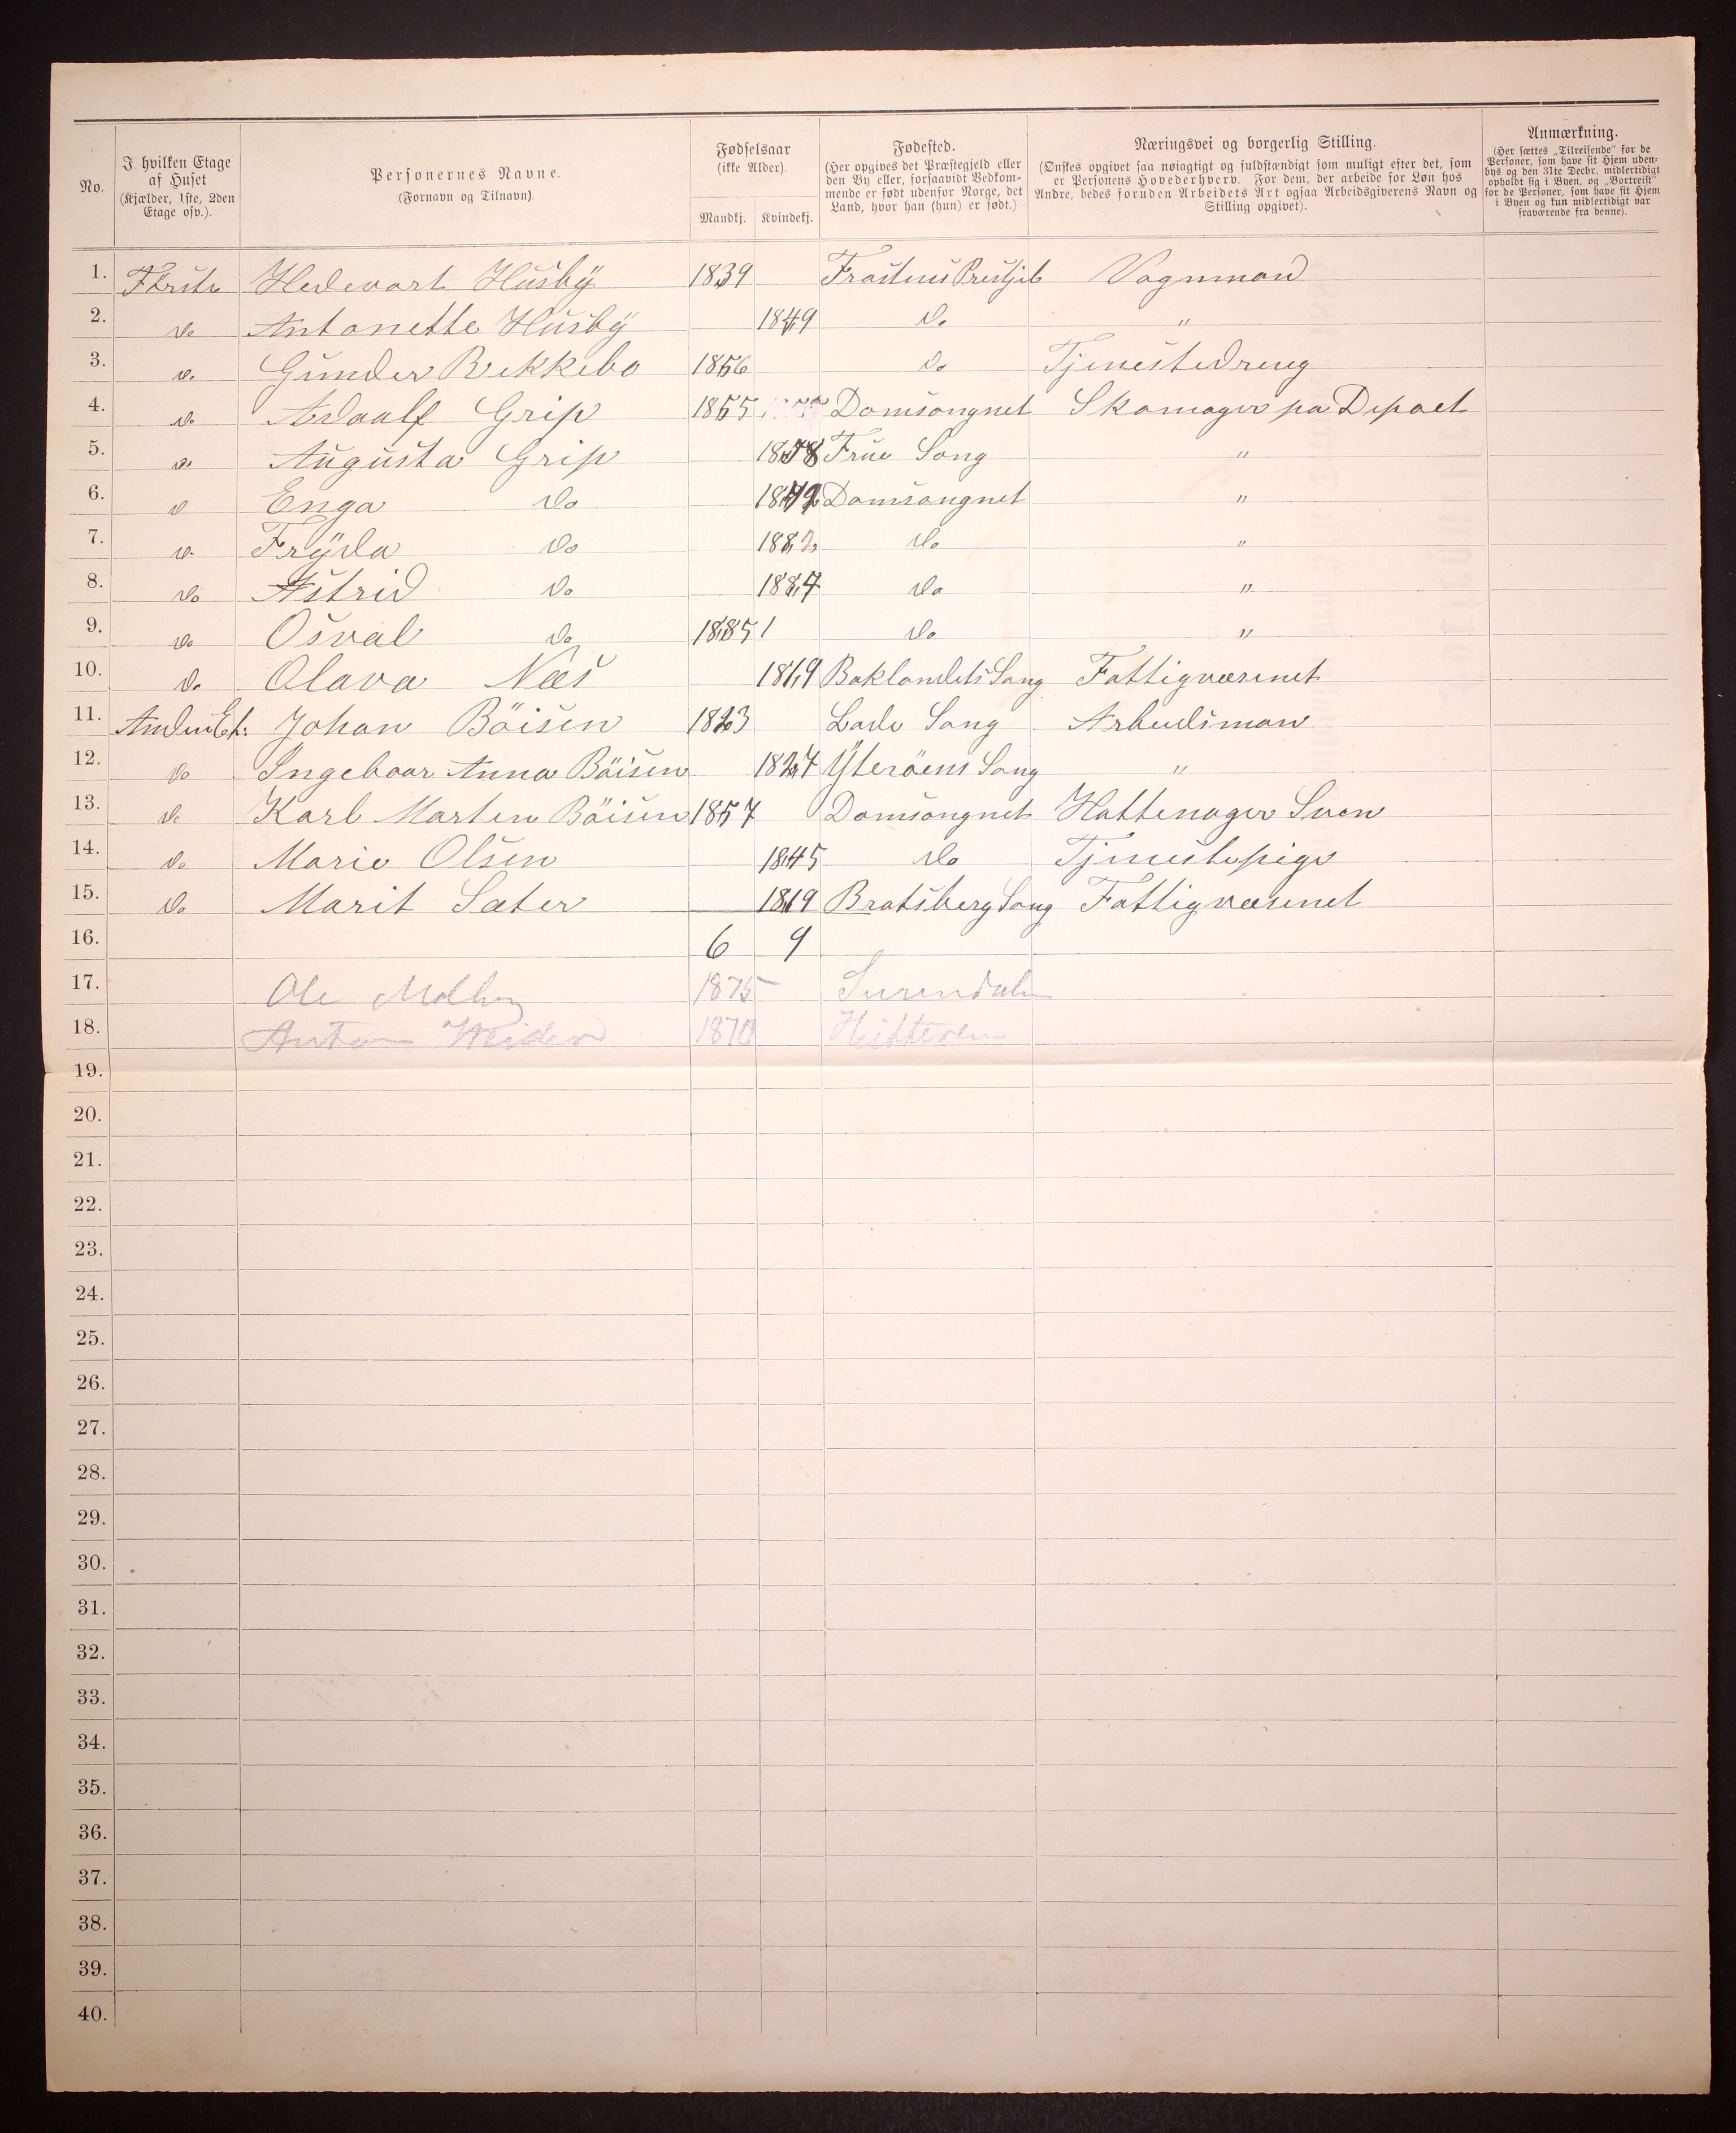 No.
I hvilken Etage af Huset (Kjælder, 1ste, 2den Etage osv.).
Personernes Navne. (Fornavn og Tilnavn).
Fødselsaar (ikke Alder). Mandkj. Kvindekj.
Fødested. (Her opgives det Præstegjeld eller den By eller, forsaavidt Vedkommende er født udenfor Norge, det Land, hvor han (hun) er født.)
Næringsvei og borgerlig Stilling. (Ønskes opgivet saa nøiagtigt og fuldstændigt som muligt efter det, som er Personens Hovederhverv. For dem, der arbeide for Løn hos Andre, bedes foruden Arbeidets Art ogsaa Arbeidsgiverens Navn og Stilling opgivet).
Anmærkning. (Her sættes „Tilreisende“ for de Personer, som have sit Hjem udenbys og den 31te Decbr. midlertidigt opholdt sig i Byen, og „Bortreist“ for de Personer, som have sit Hjem i Byen og kun midlertidigt var fraværende fra denne).
1. Hedevart Husby 1839 Vognmand
2. do Antonette Husby 1849 do "
3. do Gunder Bekkebo 1856 do Tjenestedreng
4. do Adaalf Grip 1855 Domsongnet Skomager pa Depoet
5. do Augusta Grip 1858 Frue Song "
6. do Enga do Domsongnet "
7. do Fryda do 1882 do "
8. do Astrid do 1887 do "
9. do Osval do 1885 1 do "
10. do Olava Næs 1819 Baklandets Song Fattigvæsenet
11. Anden Et: Johan Böisen 1823 Lade Song Arbeidsman
12. do Ingeboar Anna Böisen 1824 Yteröens Song "
13. do Karl Marten Böisen 1857 Domsongnet Hattemager Sven
14. do Marie Olsen 1845 do Tjenestepige
15. do Marit Sæter 1819 Bratsberg Song Fattigvæsenet
16. 6 9
17. Ole 1875 Surendalen
18. Anton Weider 1870 Hitteren
19.
20.
21.
22.
23.
24.
25.
26.
27.
28.
29.
30.
31.
32.
33.
34.
35.
36.
37.
38.
39.
40.